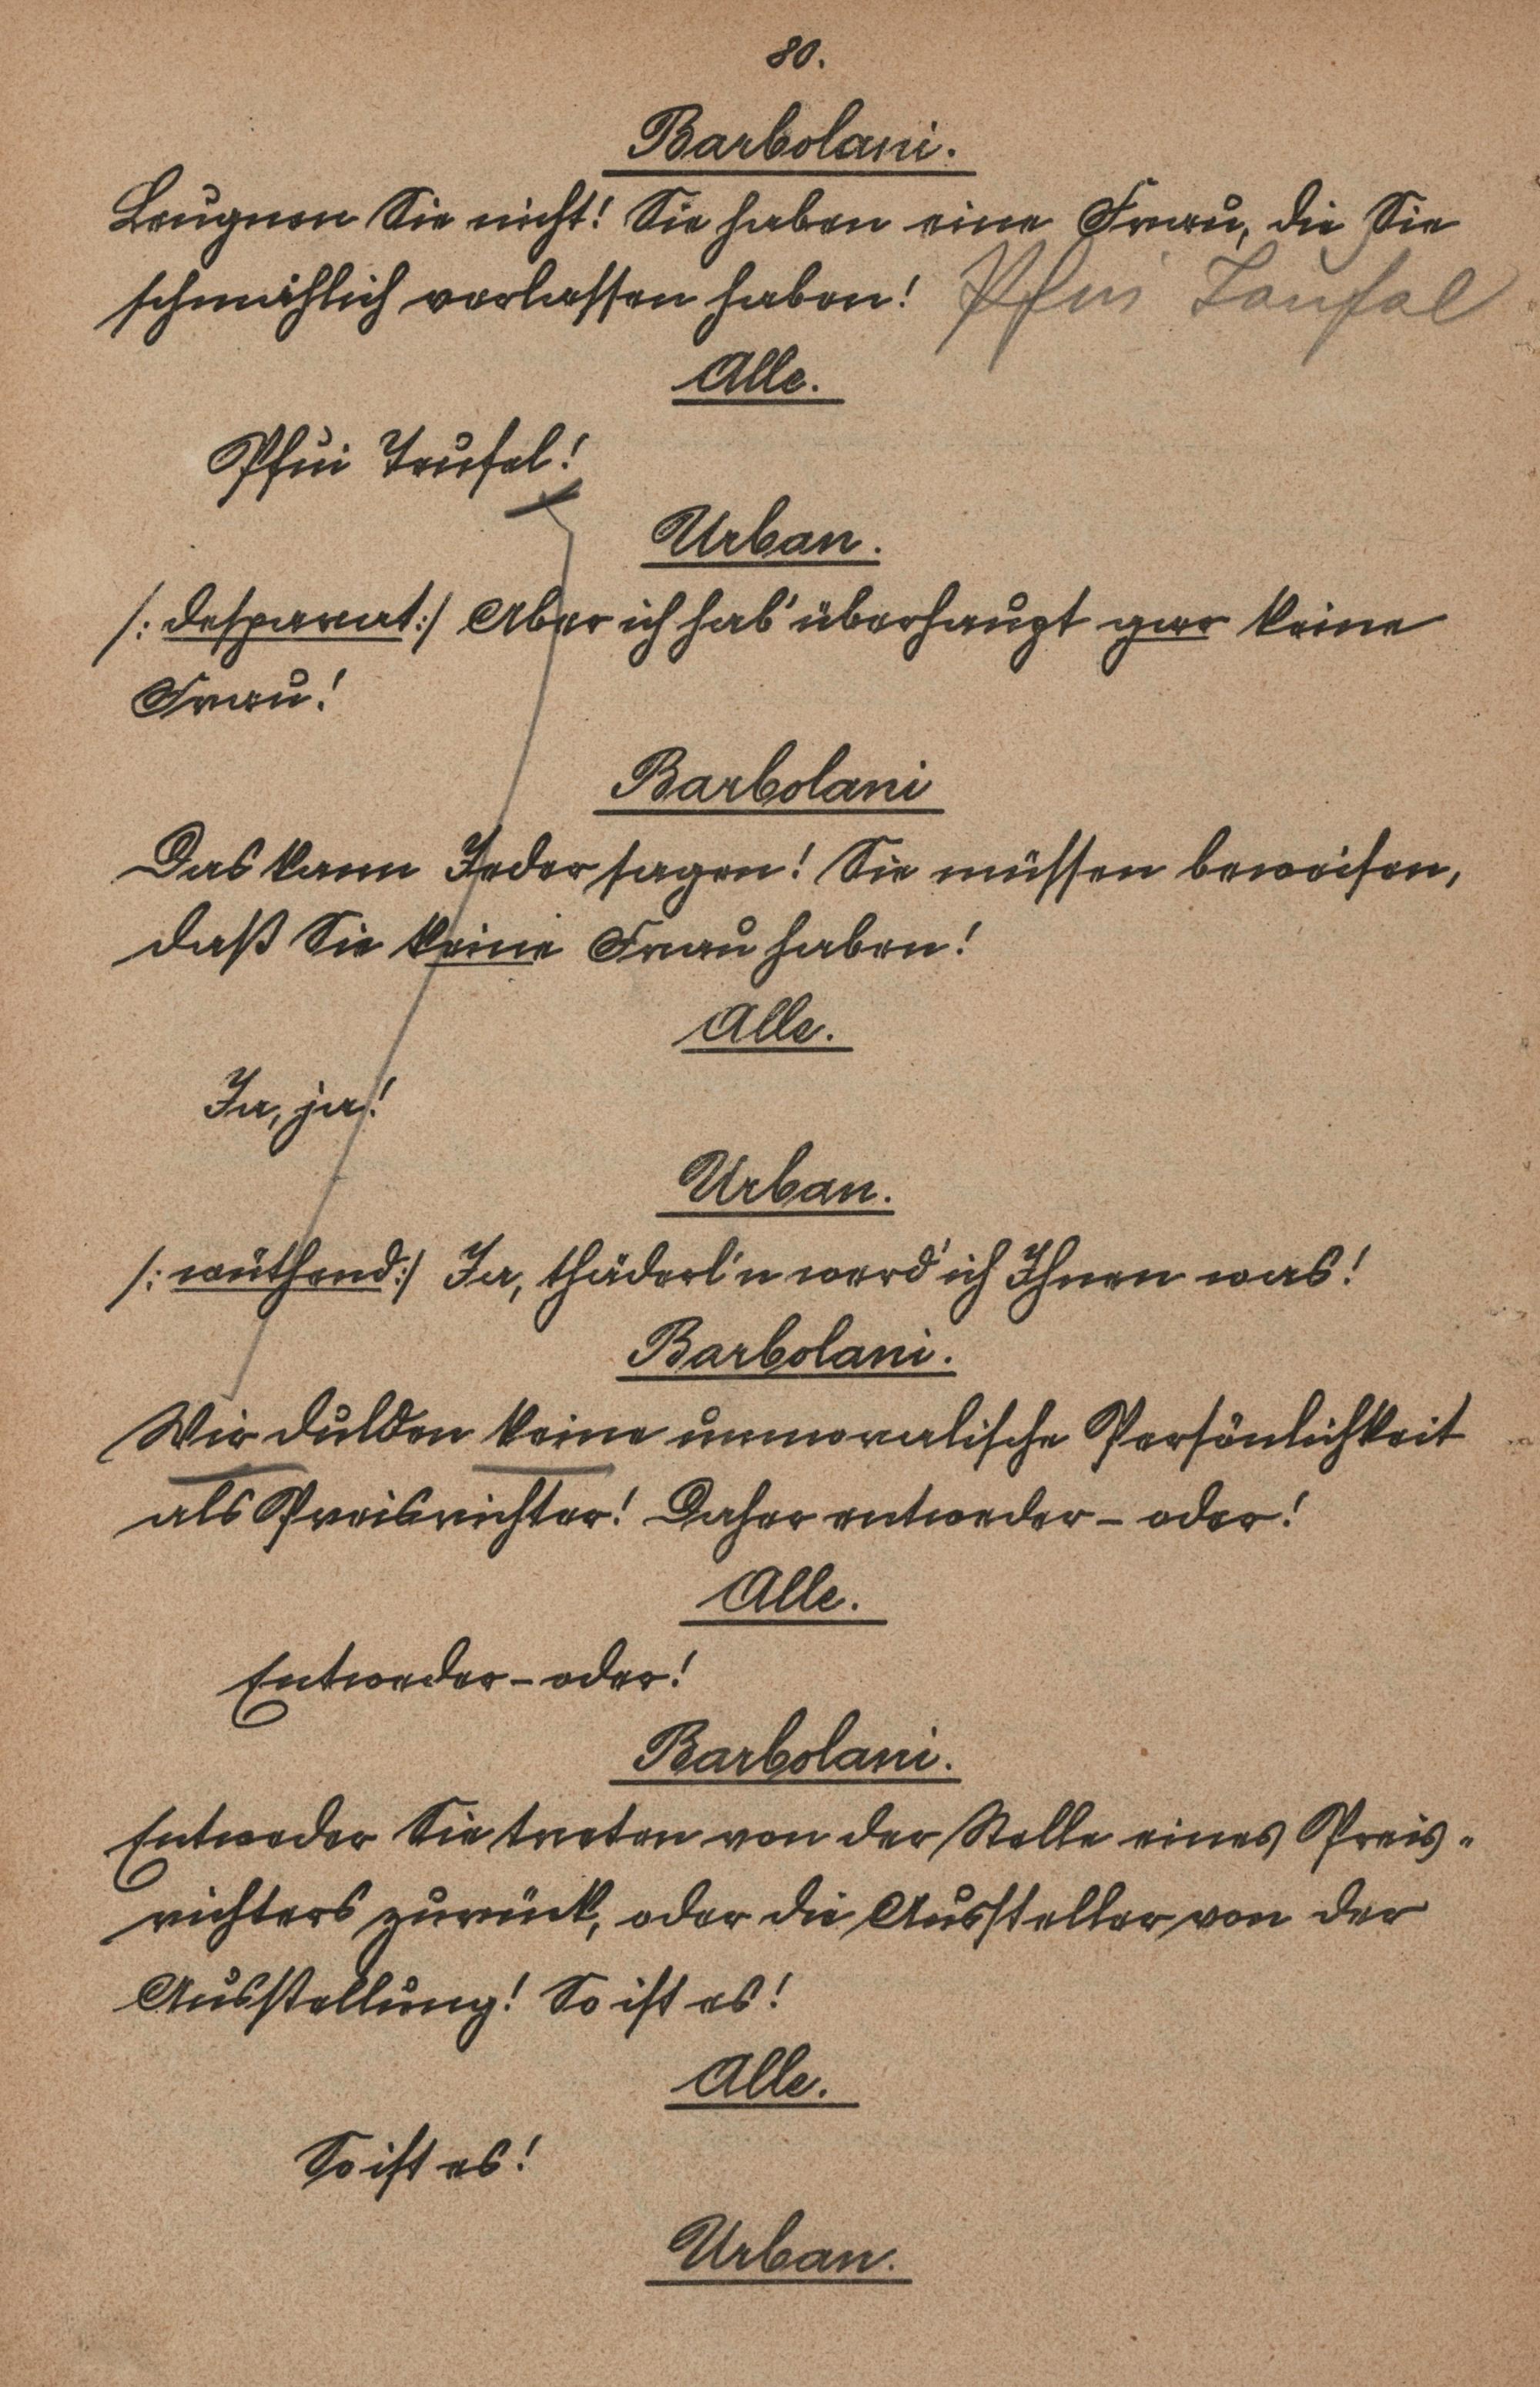 80.
Barbolani.
Leugnen Sie nicht! Sie haben eine Frau, die Sie
schmählich verlassen haben! Pfui Teufel
Alle.
Pfui Teufel!
Urban.
/: desperat :/ Aber ich hab' überhaupt gar keine
Frau!
Barbolani
Das kann Jeder sagen! Sie müssen beweisen,
daß Sie keine Frau haben!
Alle.
Ja, ja!
Urban.
/: wüthend :/ Ja, thäderl'n werd' ich Ihnen was!
Barbolani.
Wir dulden keine unmoralische Persönlichkeit
als Preisrichter! Daher entweder - oder!
Alle.
Entweder - oder!
Barbolani.
Entweder Sie treten von der Stelle eines Preis-
richters zurück, oder die Aussteller von der
Ausstellung! So ist es!
Alle.
So ist es!
Urban.